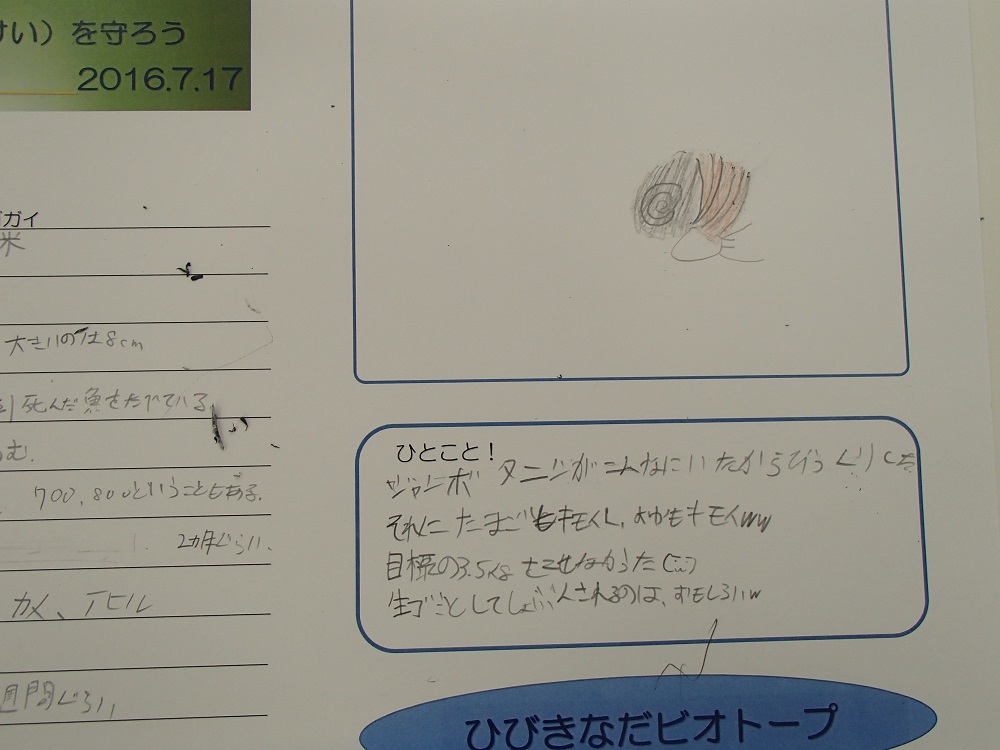 けい）を守ろう
2016.7.17
ガイ
米
大きいので8cm
死んだ魚をたべている。
む.
700,800ということもある.
2カ月ぐらい.
カメ、アヒル
週間ぐらい
ひとこと！
ジャンボ タニシがこんなにいたからびっくりした
それに たまごもキモイし、おやもキモイww
目標の3.5kgをこせなかった
生ゴミとしてしょぶんされるのは、おもしろいw
ひびきなだビオトープ